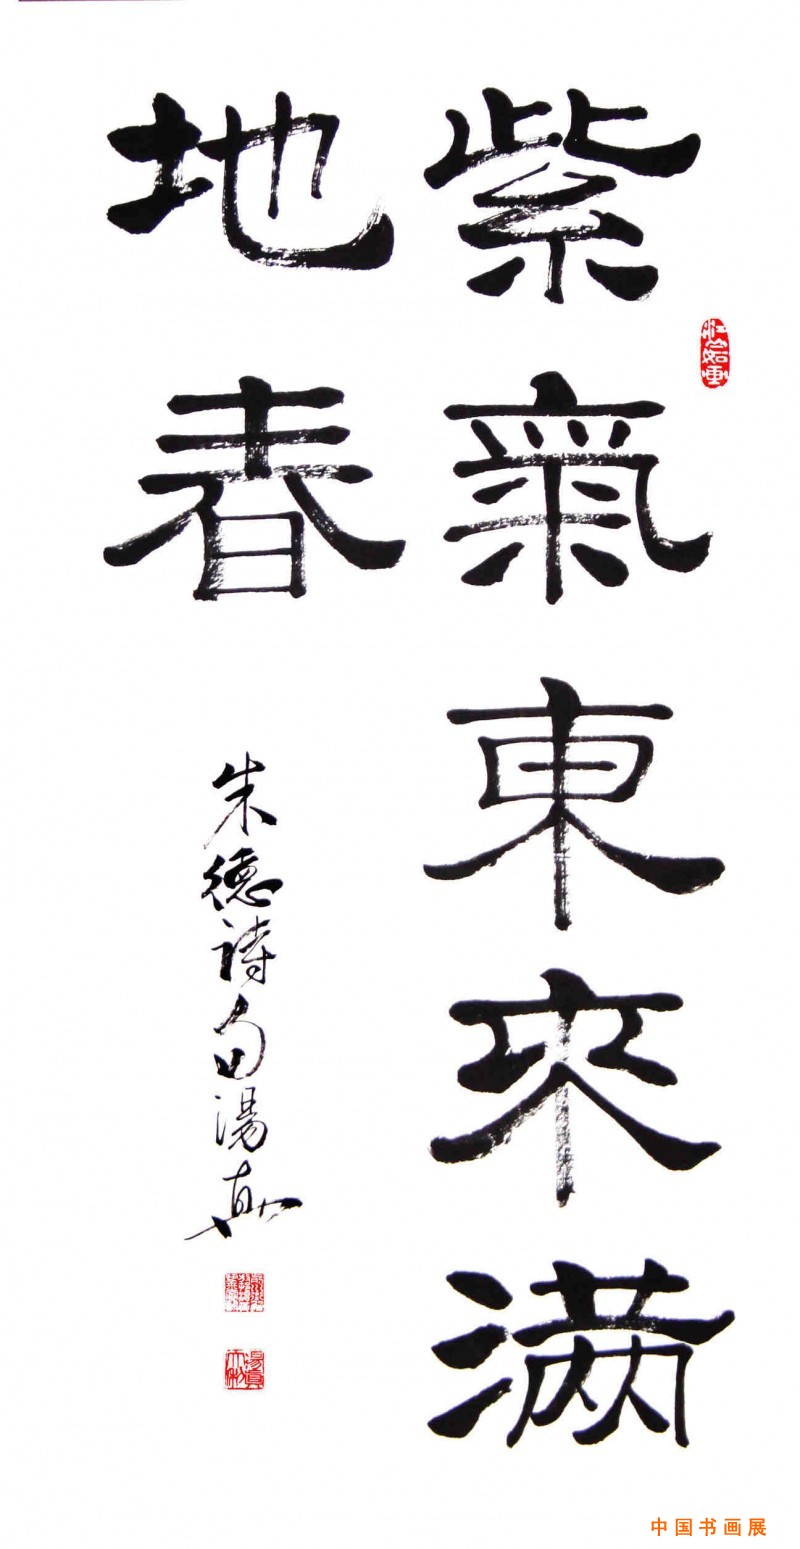 紫氣東來满
地春
朱德詩句湯真
中国书画展